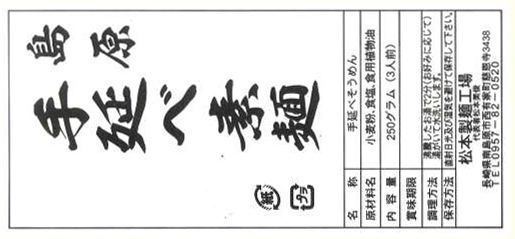 島原
手延べ素麺
紙
プラ
名称 手延べそうめん
原材料名 小麦粉、食塩、食用植物油
内容量 250グラム(3人前)
賞味期限
調理方法 沸騰したお湯で2分(お好みに応じて)
湯がいて水洗いします。
保存方法 直射日光及び湿気を避けて保存して下さい。
松本製麺工場
長崎県南島原市西有家町慈恩寺3438
TEL0957-82-0520